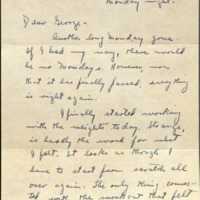 Monday night.
Dear George-
Another long Monday gone.
If I had my way, there would
be no Mondays. However, now
that it has finally passed, everything
is right again.
I finally started working
with the weights today. Strange,
is hardly the word for what
I felt. It looks as though I
have to start from scratch all
over again. The only thing connec-
ted with the workout that felt